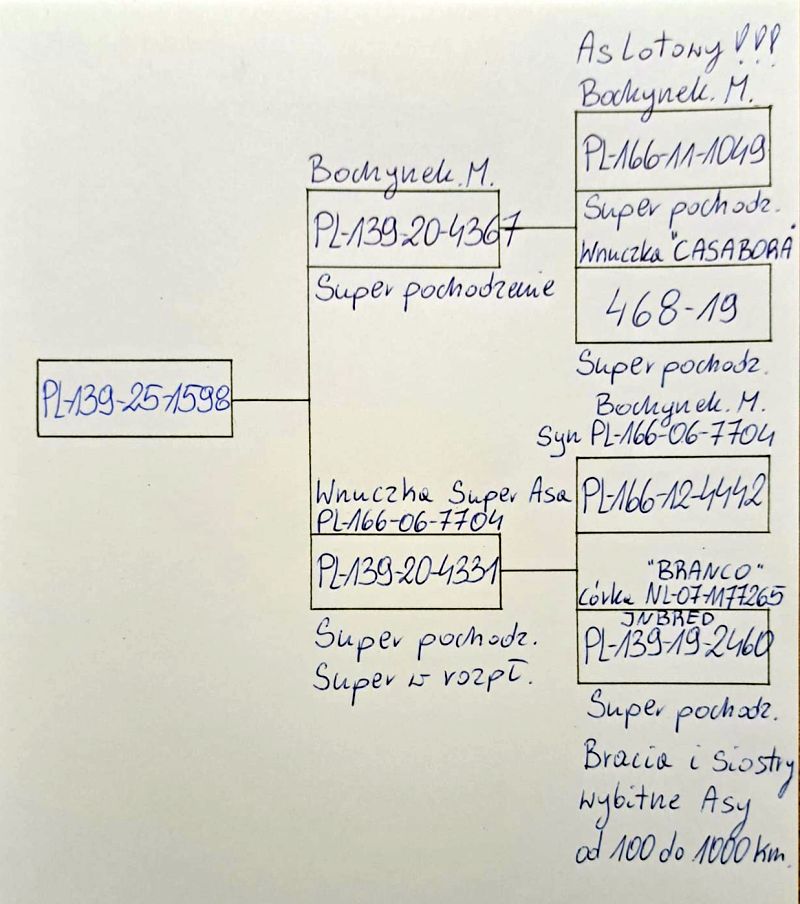 As Lotowy !!!
Bochynek. M.
PL-166-11-1049
Super pochodz.
Wnuczka "CASABORA"
468-19
Super pochodz.
Bochynek. M.
PL-139-20-4367
Super pochodzenie
PL-139-25-1598
Bochynek. M.
Syn PL-166-06-7704
PL-166-12-4442
"BRANCO"
córka NL-07-1177265
INBRED
PL-139-19-2460
Super pochodz.
Bracia i Siostry
wybitne Asy
od 100 do 1000 km.
Wnuczka Super Asa
PL-166-06-7704
PL-139-20-4331
Super pochodz.
Super w rozpł.